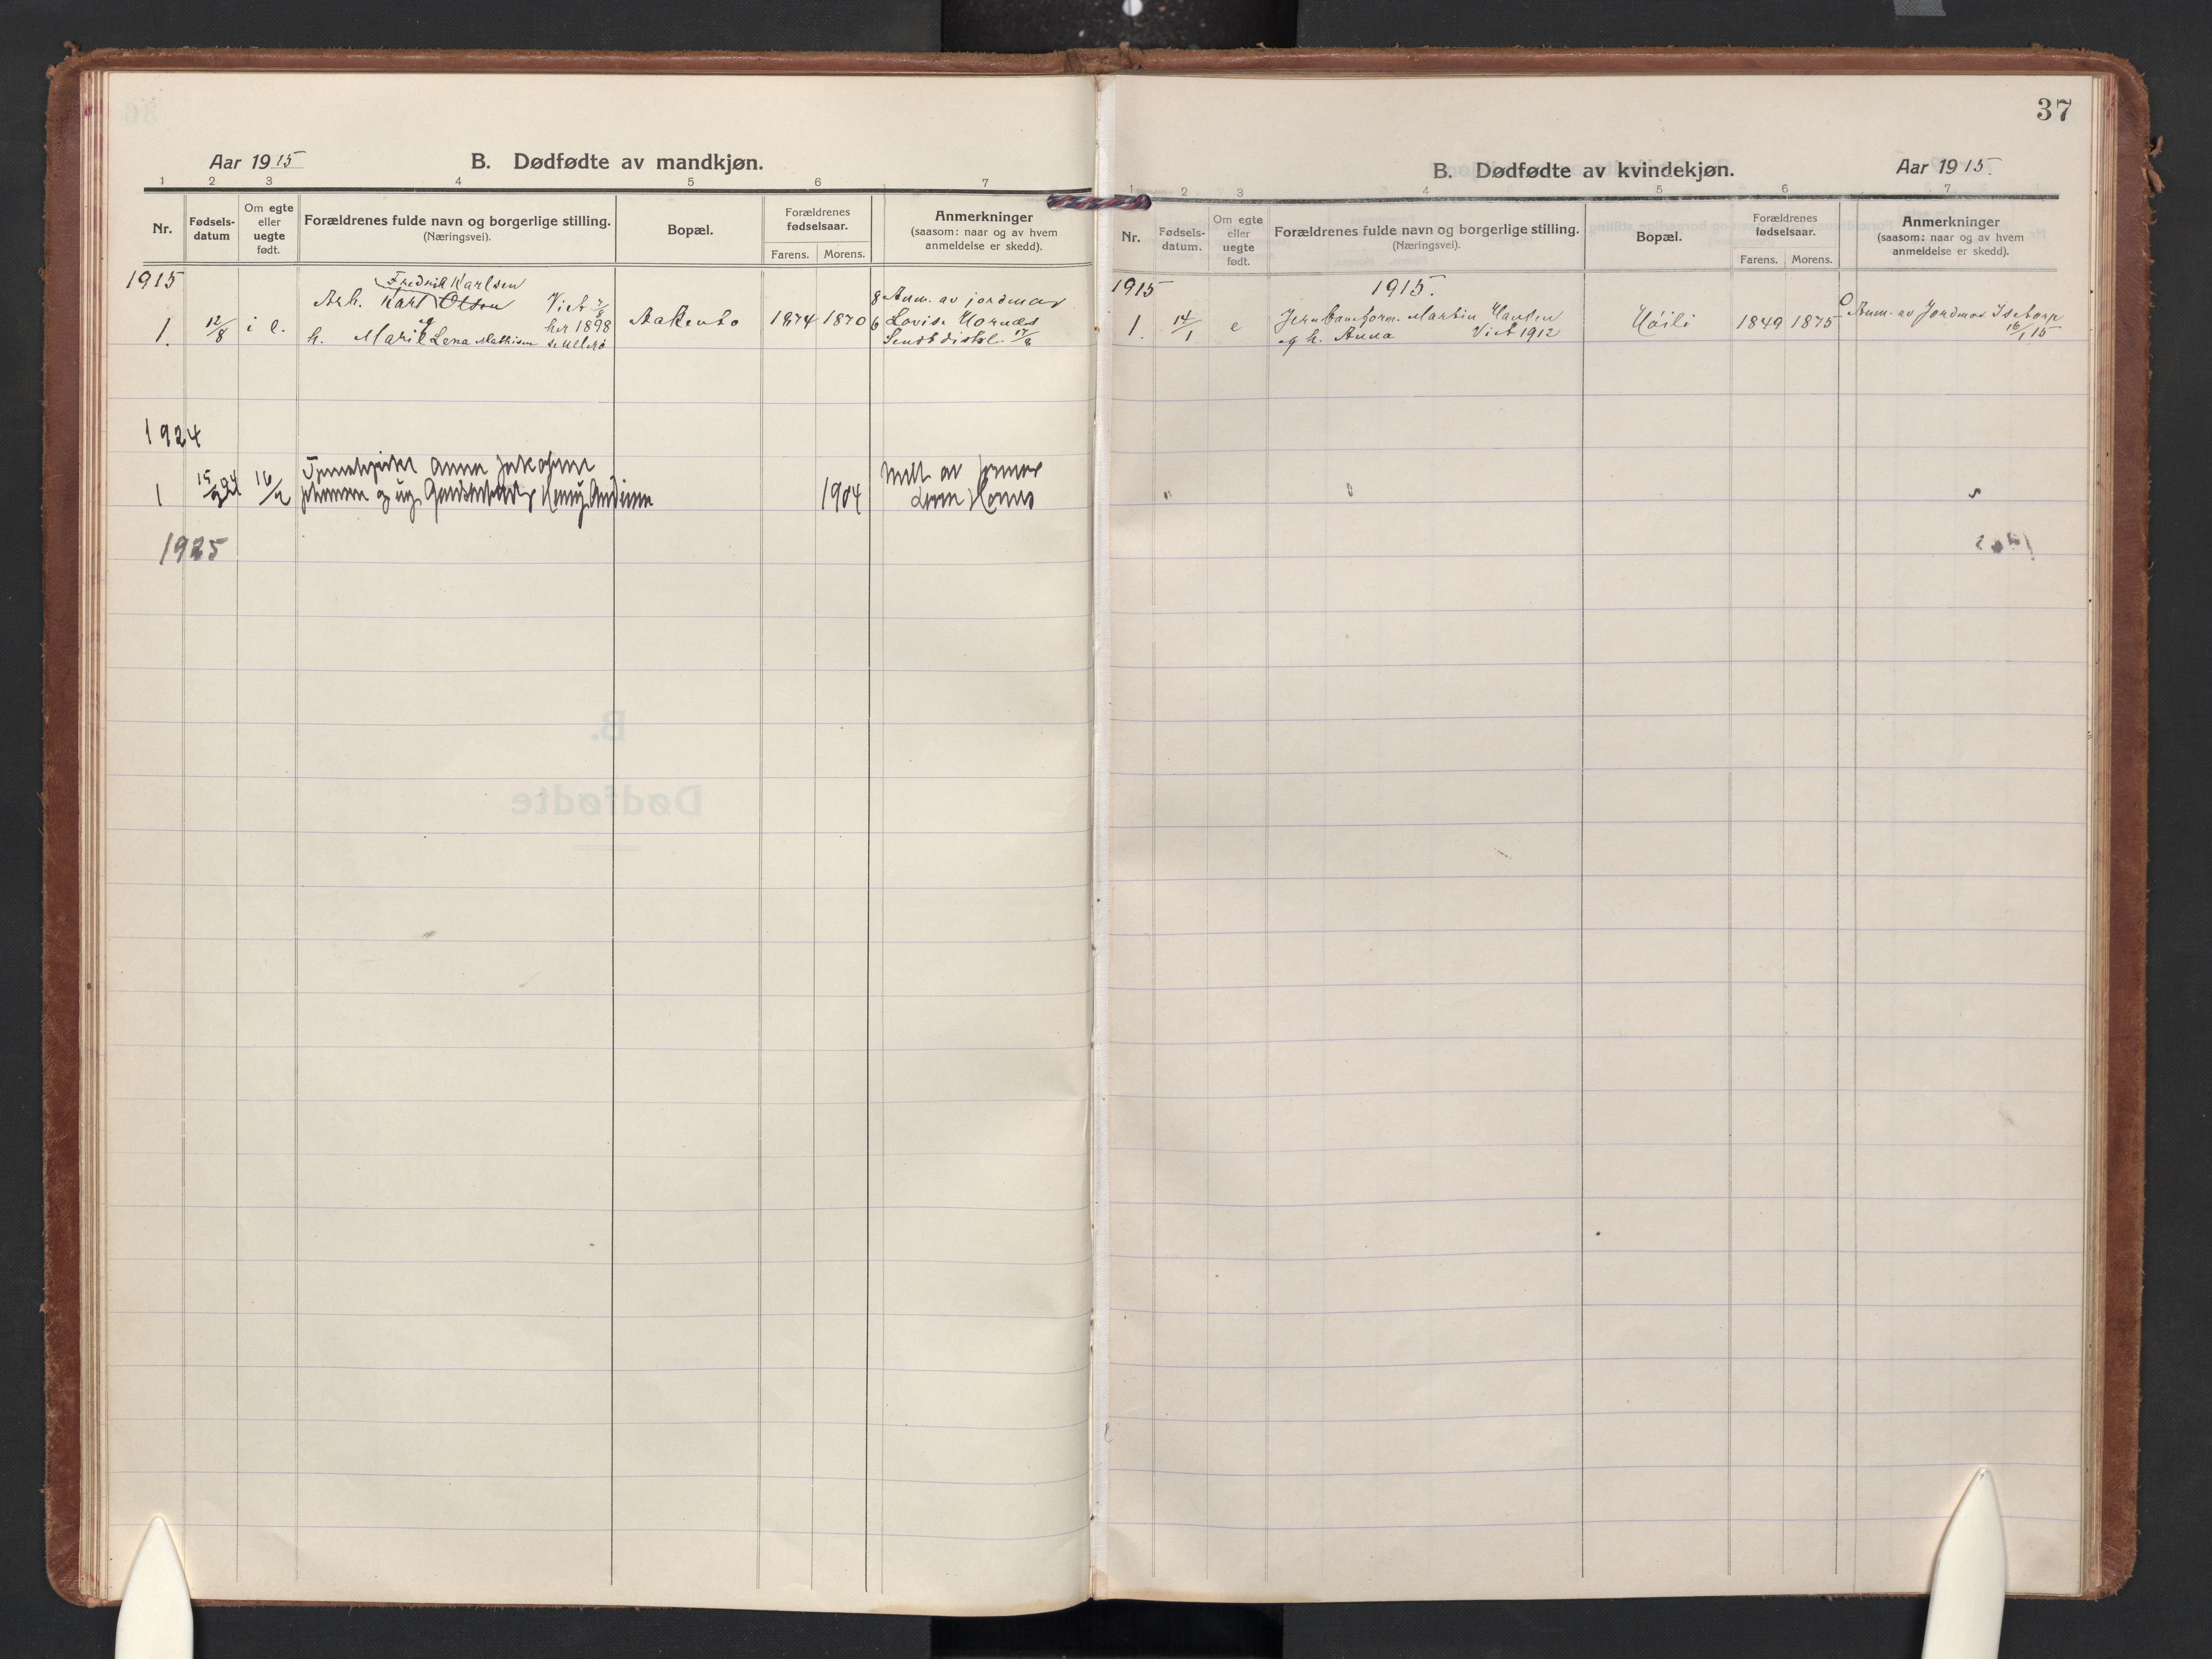 Aar 1915
B. Dødfødte av mandkjøn.
1 2 3 4 5 6 7
Nr.
Fødsels-
datum
Om egte
eller
uegte
født.
Forældrenes fulde navn og borgerlige stilling.
(Næringsvei).
Bopæl.
Forældrenes
fødselsaar.
Farens. Morens.
Anmerkninger
(saasom: naar og av hvem
anmeldelse er skedd).
1915
Fredrik Karlsen
Arb. Karl Olsen Viet 7/8
og her 1898
1. 12/8 i e. h. Marie Lena Mathisen
Aakenbo 1874 1870
8 Anm. av jordmor
6 Lovise Hornæs
17/8
1924
1 15/9 24 16/9
Anna Jakobine
Johansen og
1904
Meldt av jormor
Hornes
1925
37
B. Dødfødte av kvindekjøn.
Aar 1915.
1 2 3 4 5 6 7
Nr.
Fødsels-
datum.
Om egte
eller
uegte
født.
Forældrenes fulde navn og borgerlige stilling.
(Næringsvei).
Bopæl.
Forældrenes
fødselsaar.
Farens. Morens.
Anmerkninger
(saasom: naar og av hvem
anmeldelse er skedd).
1915 1915.
1. 14/1 e Jernbaneform. Martin Hansen
og h. Anna Viet 1912
Höili 1849 1875
0 Anm. av Jordmor Isetorp
16/1 15